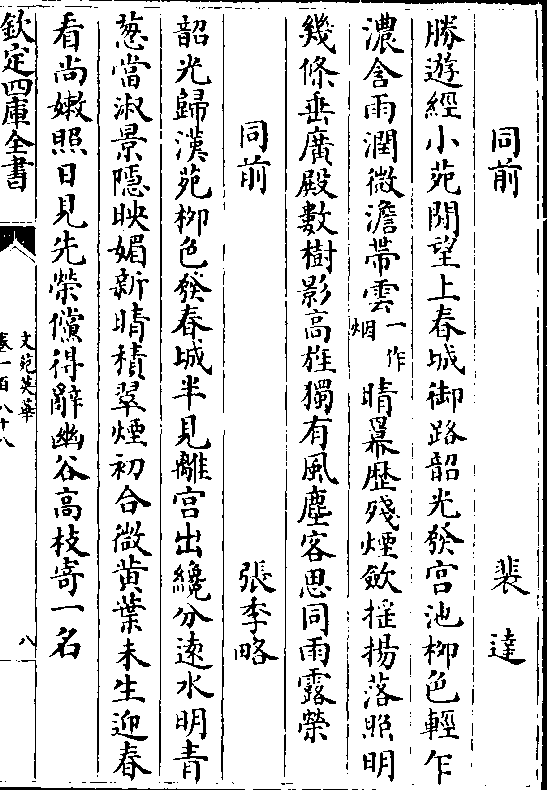 同前 裴達
勝遊經小苑閒望上春城御路韶光發宫池柳色輕乍
濃含雨潤微澹帶雲一作烟晴羃歴殘煙歛揺揚落照明
幾條垂廣殿數樹影髙旌獨有風塵客思同雨露榮
同前 張季略
韶光歸漢苑柳色發春城半見離宫出纔分逺水明青
葱當淑景隠映媚新晴積翠煙初合微黄葉未生迎春
看尚嫩照日見先榮儻得辭幽谷髙枝寄一名
欽定四庫全書
文苑英華
卷一百八十八
八